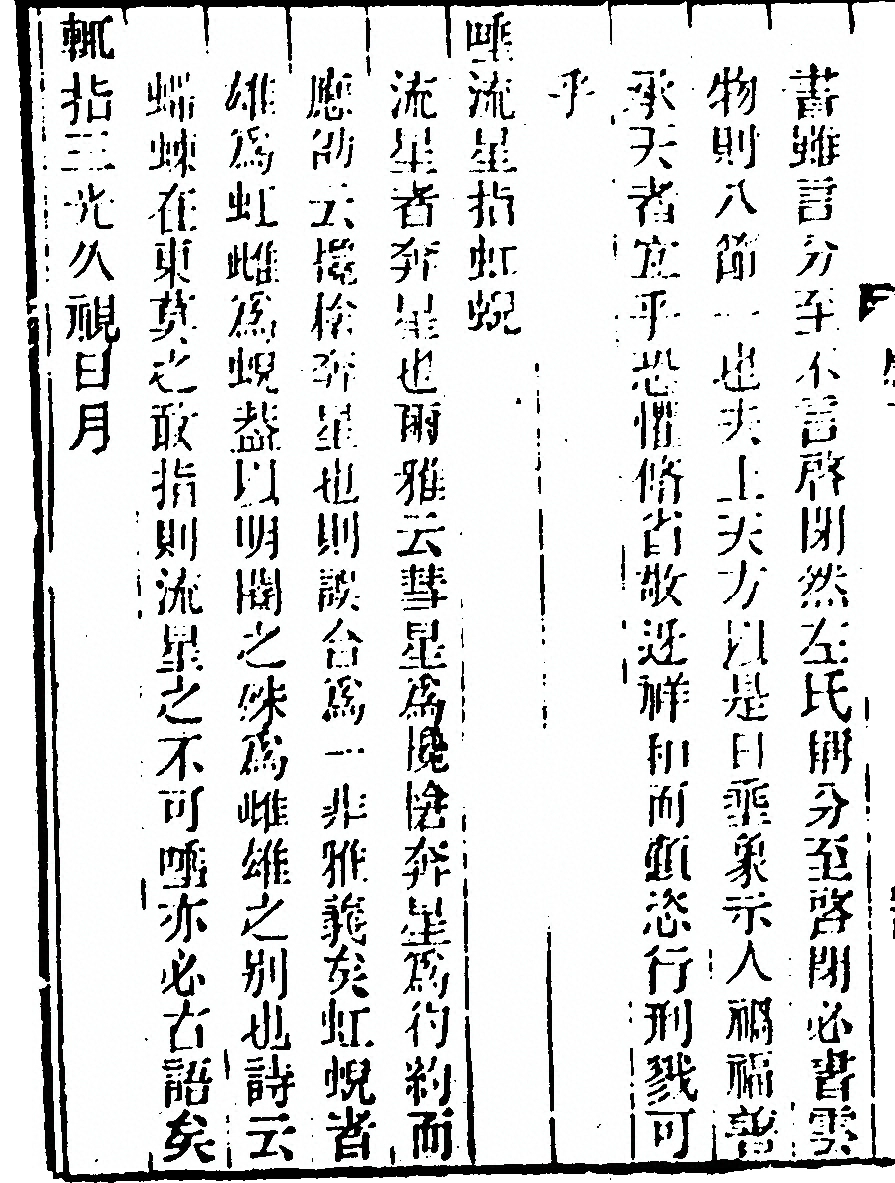 書雖言分至不言啓閉然左氏稱分至啓閉必書雲
物則八節一也夫上天方以是日垂象示人禍福諸
承天者宜乎恐懼脩省敬迓祥和而顧恣行刑戮可
乎
唾流星指虹蜺
流星者奔星也爾雅云彗星爲欃槍奔星爲彴約而
應劭云欃槍奔星也則誤合爲一非雅義矣虹蜺者
雄爲虹雌爲蜺葢以明闇之殊爲雌雄之别也詩云
蝃蝀在東莫之敢指則流星之不可唾亦必古語矣
輒指三光久視日月